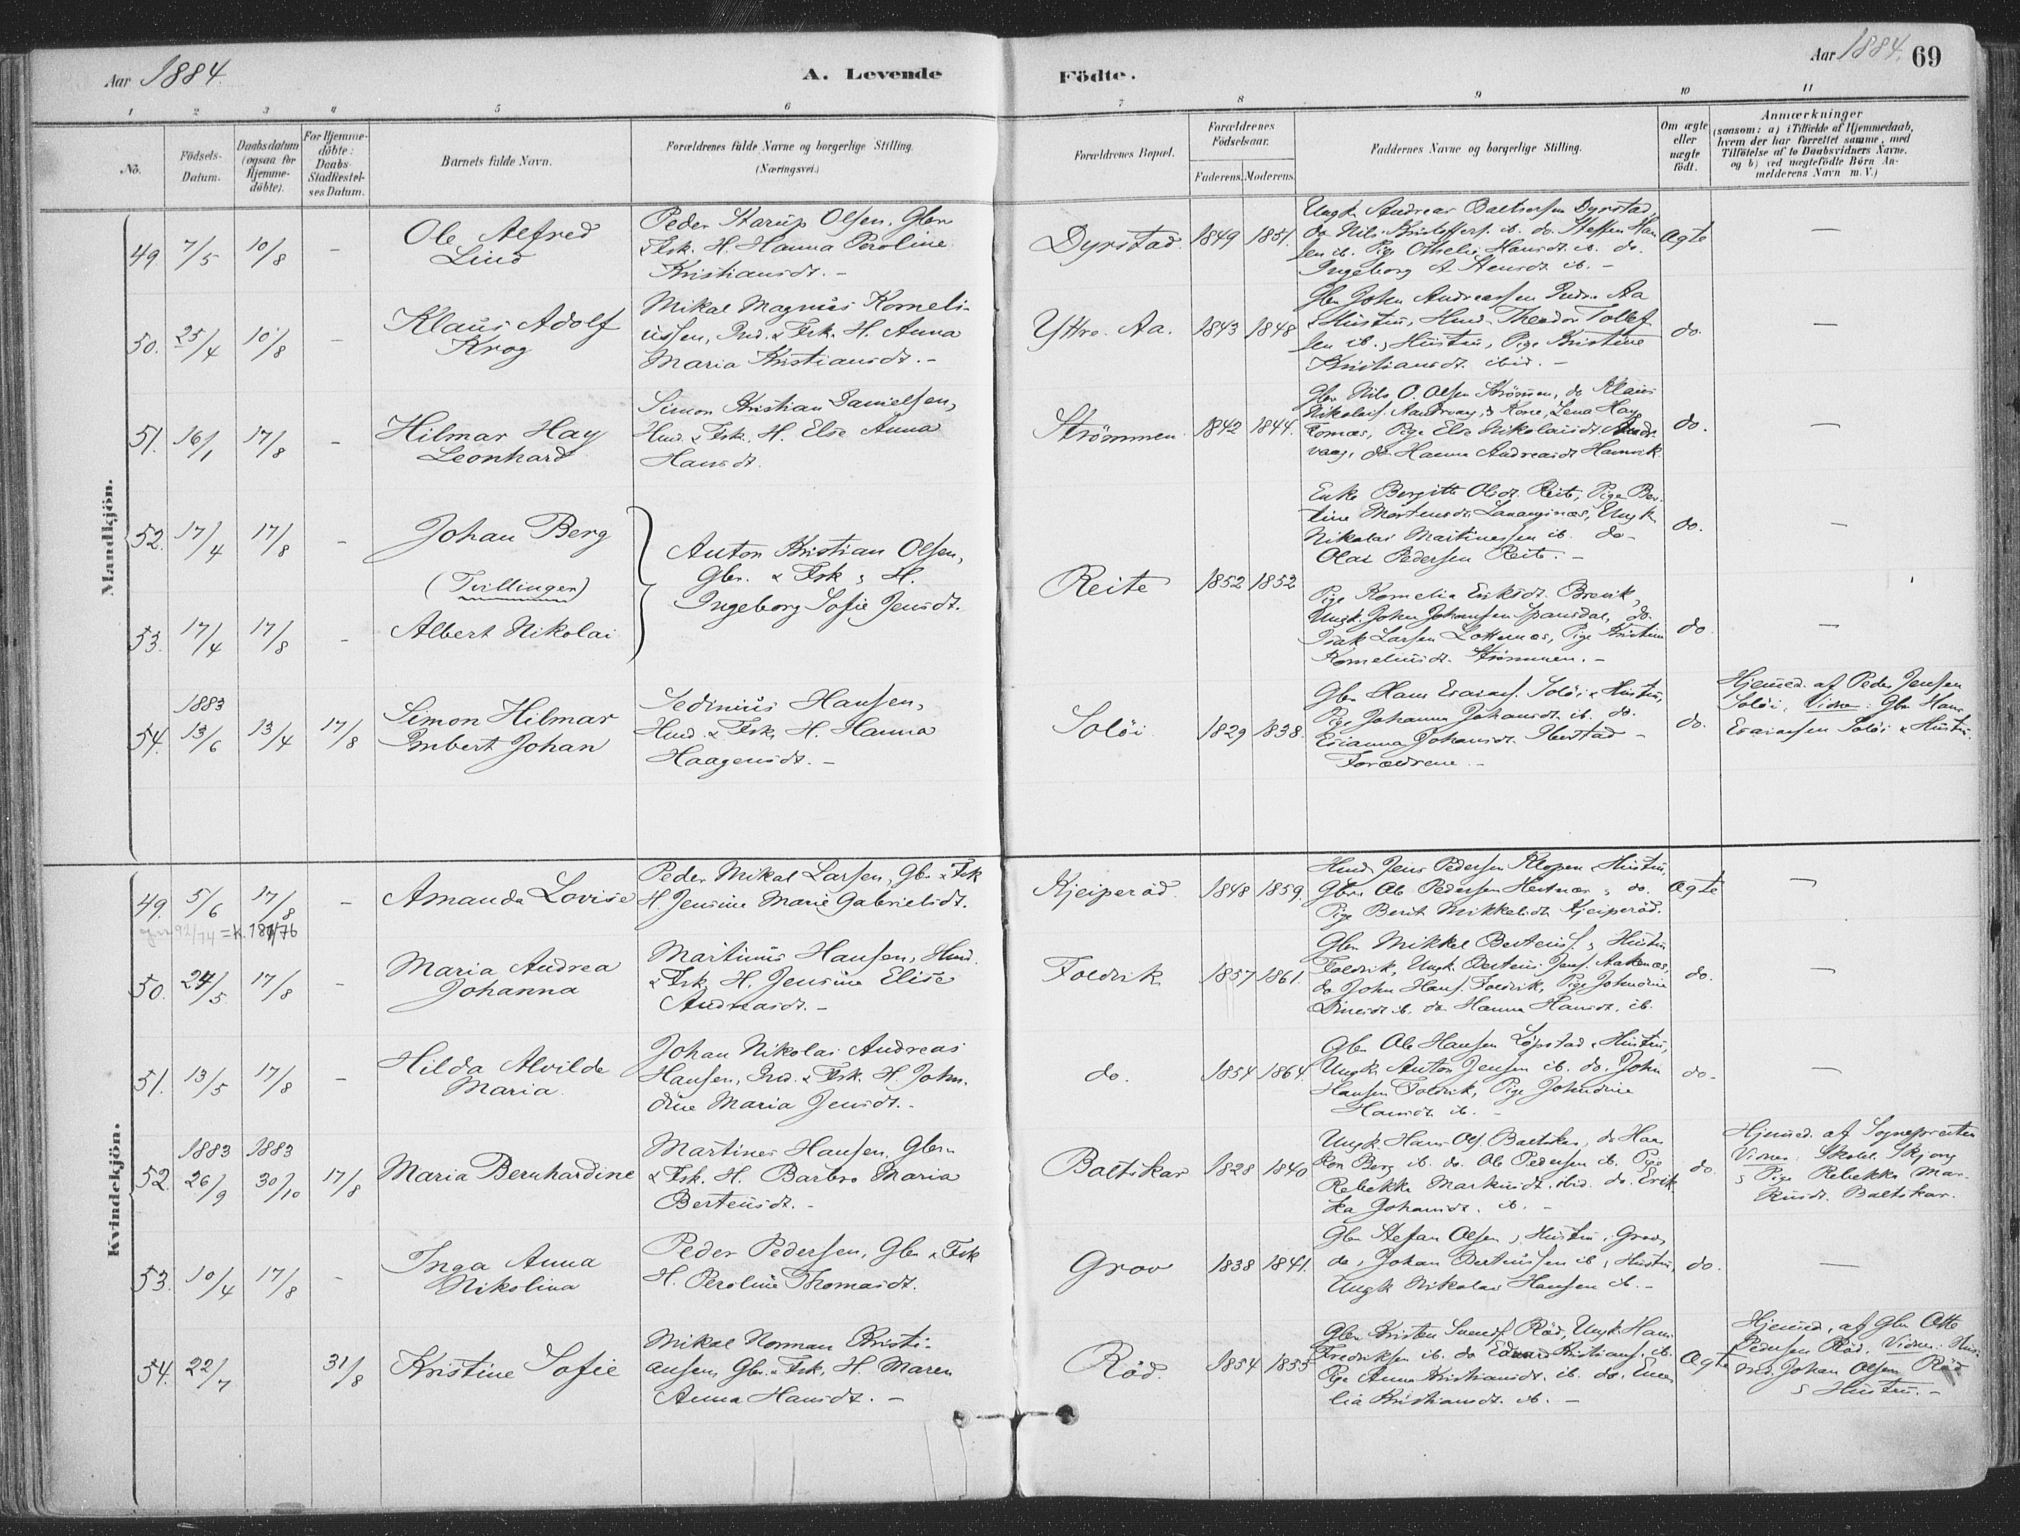 Aar 1884.
A. Levende
Födte.
Aar 1884.
69
1 2 3 4 5 6 7 8 9 10 11
No.
Födsels-
Datum.
Daabsdatum
(ogsaa for
Hjemme-
döbte).
For Hjemme-
döbte:
Daabs-
Stadfæstel-
ses Datum.
Barnets fulde Navn.
Forældrenes fulde Navne og borgerlige Stilling.
(Næringsvei.)
Forældrenes Bopæl.
Forældrenes
Födselsaar.
Faderens. Moderens.
Faddernes Navne og borgerlige Stilling.
Om ægte
eller
uægte
födt.
Anmærkninger
(saasom: a) i Tilfælde af Hjemmedaab,
hvem der har forrettet samme, med
Tilföielse af to Daabsvidners Navne,
og b) ved uægtefödte Börn An-
melderens Navn m. V.)
Mandkjön.
49 7/5 10/8 -
Ole Alfred
Lind
Peder Karup Olsen, Gbr
& Fsk. H. Hanna Peroline
Kristiansdt. -
Dyrstad. 1849 1851.
Ungk. Andreas Baltsersen Dyrstad,
do Nils Kristoffers. ib. do. Steffen Han
sen ib. Pige Othelie Hansdt. ib. do.
Ingeborg A Stensdt. ib. -
Ægte
—
50. 25/4 10/8 -
Klaus Adolf
Krog
Mikal Magnus Korneli-
ussen, Ind. & Fsk. H. Anna
Maria Kristiansdt. -
Yttre. Aa. 1843 1848
Gbr John Andreassen Indre Aa
& Hustru, Husd. Theodor Tollef
sen ib. & Hustru, Pige Kristine
Kristiansdt ibid. -
do.
—
51. 16/1 17/8 -
Hilmar Hay
Leonhard
Simon Kristian Danielsen,
Husd. & Fsk. H. Else Anna
Hansdt.
Strömmen. 1842 1844.
Gbr Nils O. Olsen Strömmen, do Klaus
Nikolais. Kone, Lena Hay
Pige Else Nikolaisdt
vaag, do Hanna Andreasdt Hamvik.
do.
—
52. 17/4 17/8 -
Johan Berg
(Tvillinger)
Anton Kristian Olsen,
Gbr. & Fsk & H.
Ingeborg Sofie Jensdt.
Reite 1852 1852
Enke Bergitte Olsdt. Reite, Pige Ber-
tine Mortensdt Ungk
Nikolai Martinussen ib. do
Olai Pedersen Reite. -
do.
—
53. 17/4 17/8 -
Albert Nikolai
Pige Kornelia Eriksdt. Brevik,
Ungk. John Johansen Spansdal, do.
Isak Larsen Lottenæs, Pige Kristine
Korneliusdt. Strömmen. -
do.
—
1883
54. 13/6 13/4 17/8
Simon Hilmar
Imbert Johan
Sedinius Hansen,
Husd. & Fsk. H. Hanna
Haagensdt. -
Solöi 1829 1838.
Gbr Hans Esaias. Solöi & Hustru,
Pige Johanna Johansdt. ib. do.
Johansdt. Ibestad -
Forældrene. -
do.
Hjemmed. af Peder Jensen
Solöi, Vidner: Gbr Hans
Esaiassen Solöi & Hustru.
Kvindekjön.
49. 5/6 17/8 -
Amanda Lovise
Peder Mikal Larsen, Gbr & Fsk
H. Jensine Marie Gabrielsdt.
Kjeiperöd. 1848 1859.
Husd. Jens Pedersen Klopen & Hustru,
Gbr. Ole Pedersen Hestnæs & do.
Pige Berit Mikkelsdt. Kjeiperöd.
Ægte
—
92/74 = K. 187/76
50. 24/5 17/8 -
Maria Andrea
Johanna
Martinus Hansen, Husd.
& Fsk. H. Jensine Elise
Andreasdt. -
Foldvik 1857 1861.
Gbr Mikkel Bertheus. & Hustru
Foldvik, Ungk. Berteus Jens. Aaknæs,
do John Hans. Foldvik, Pige Johndine
ib. do Hanna Hansdt. ib.
do.
—
51. 13/5 17/8 -
Hilda Alvilde
Maria.
Johan Nikolai Andreas
Hansen, Ind. & Fsk. H. John-
dine Maria Jensdt. -
do. 1854 1864.
Gbr Ole Hansen Löpstad & Hustru,
Ungk. Anton Jensen ib. do. John
Hansen Foldvik, Pige Johndine
Hansdt. ib. -
do.
—
1883 1883
52. 26/9 30/10 17/8
Maria Bernhardine
Martines Hansen, Gbr.
& Fsk. H. Barbro Maria
Berteusdt. -
Baltskar 1828 1840
Ungk Hans Ols. Baltskar, do Haa
kon Berg ib. do. Ole Pedersen ib. Pige
Rebekka Markusdt. ibid. do. Erik-
ka Johansdt. ib. -
do.
Hjemmed. af Sognepresten
Vidner: Skolel. Skjong
& Pige Rebekka Mar-
kusdt. Baltskar.
53. 10/4 17/8 -
Inga Anna
Nikolina
Peder Pedersen, Gbr & Fsk
H. Peroline Thomasdt.
Grov 1838 1841.
Gbr Stefan Olsen & Hustru, Grov,
do, Johan Berteussen ib & Hustru,
Ungk Nikolai Hansen ib. -
do.
—
54. 22/7 31/8
Kristine Sofie
Mikal Norman Kristi-
ansen, Gbr. & Fsk. H. Maren
Anna Hansdt. -
Röd. 1854 1855
Gbr Kristen Svends. Röd, Ungk. Hans
Fredriksen ib. do Edvard Kristians. ib.
Pige Anna Kristiansdt. ib. do. Eme
lia Kristiansdt. ib. -
Ægte
Hjemmed. af Gbr Otte
Pedersen Röd. Vidner:
Johan Olsen Röd
& Hustru. -